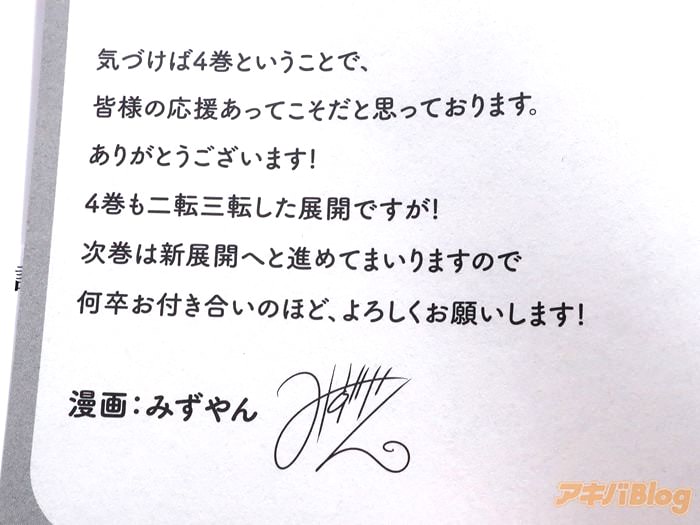 気づけば4巻ということで、
皆様の応援あってこそだと思っております。
ありがとうございます!
4巻も二転三転した展開ですが!
次巻は新展開へと進めてまいりますので
何卒お付き合いのほど、よろしくお願いします!
漫画:みずやん
アキバBlog